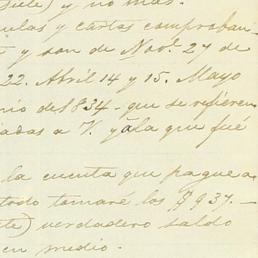 siete) y no más.
ulas y cartas comproban-
y son de Novᵉ. 27 de
22. Abril 14 y 15. Mayo
nio de 1834 - que se refieren
adas a V. y a la que fué
la cuenta que pague a
todo tomaré los $937.-
te) verdadero saldo
en medio.